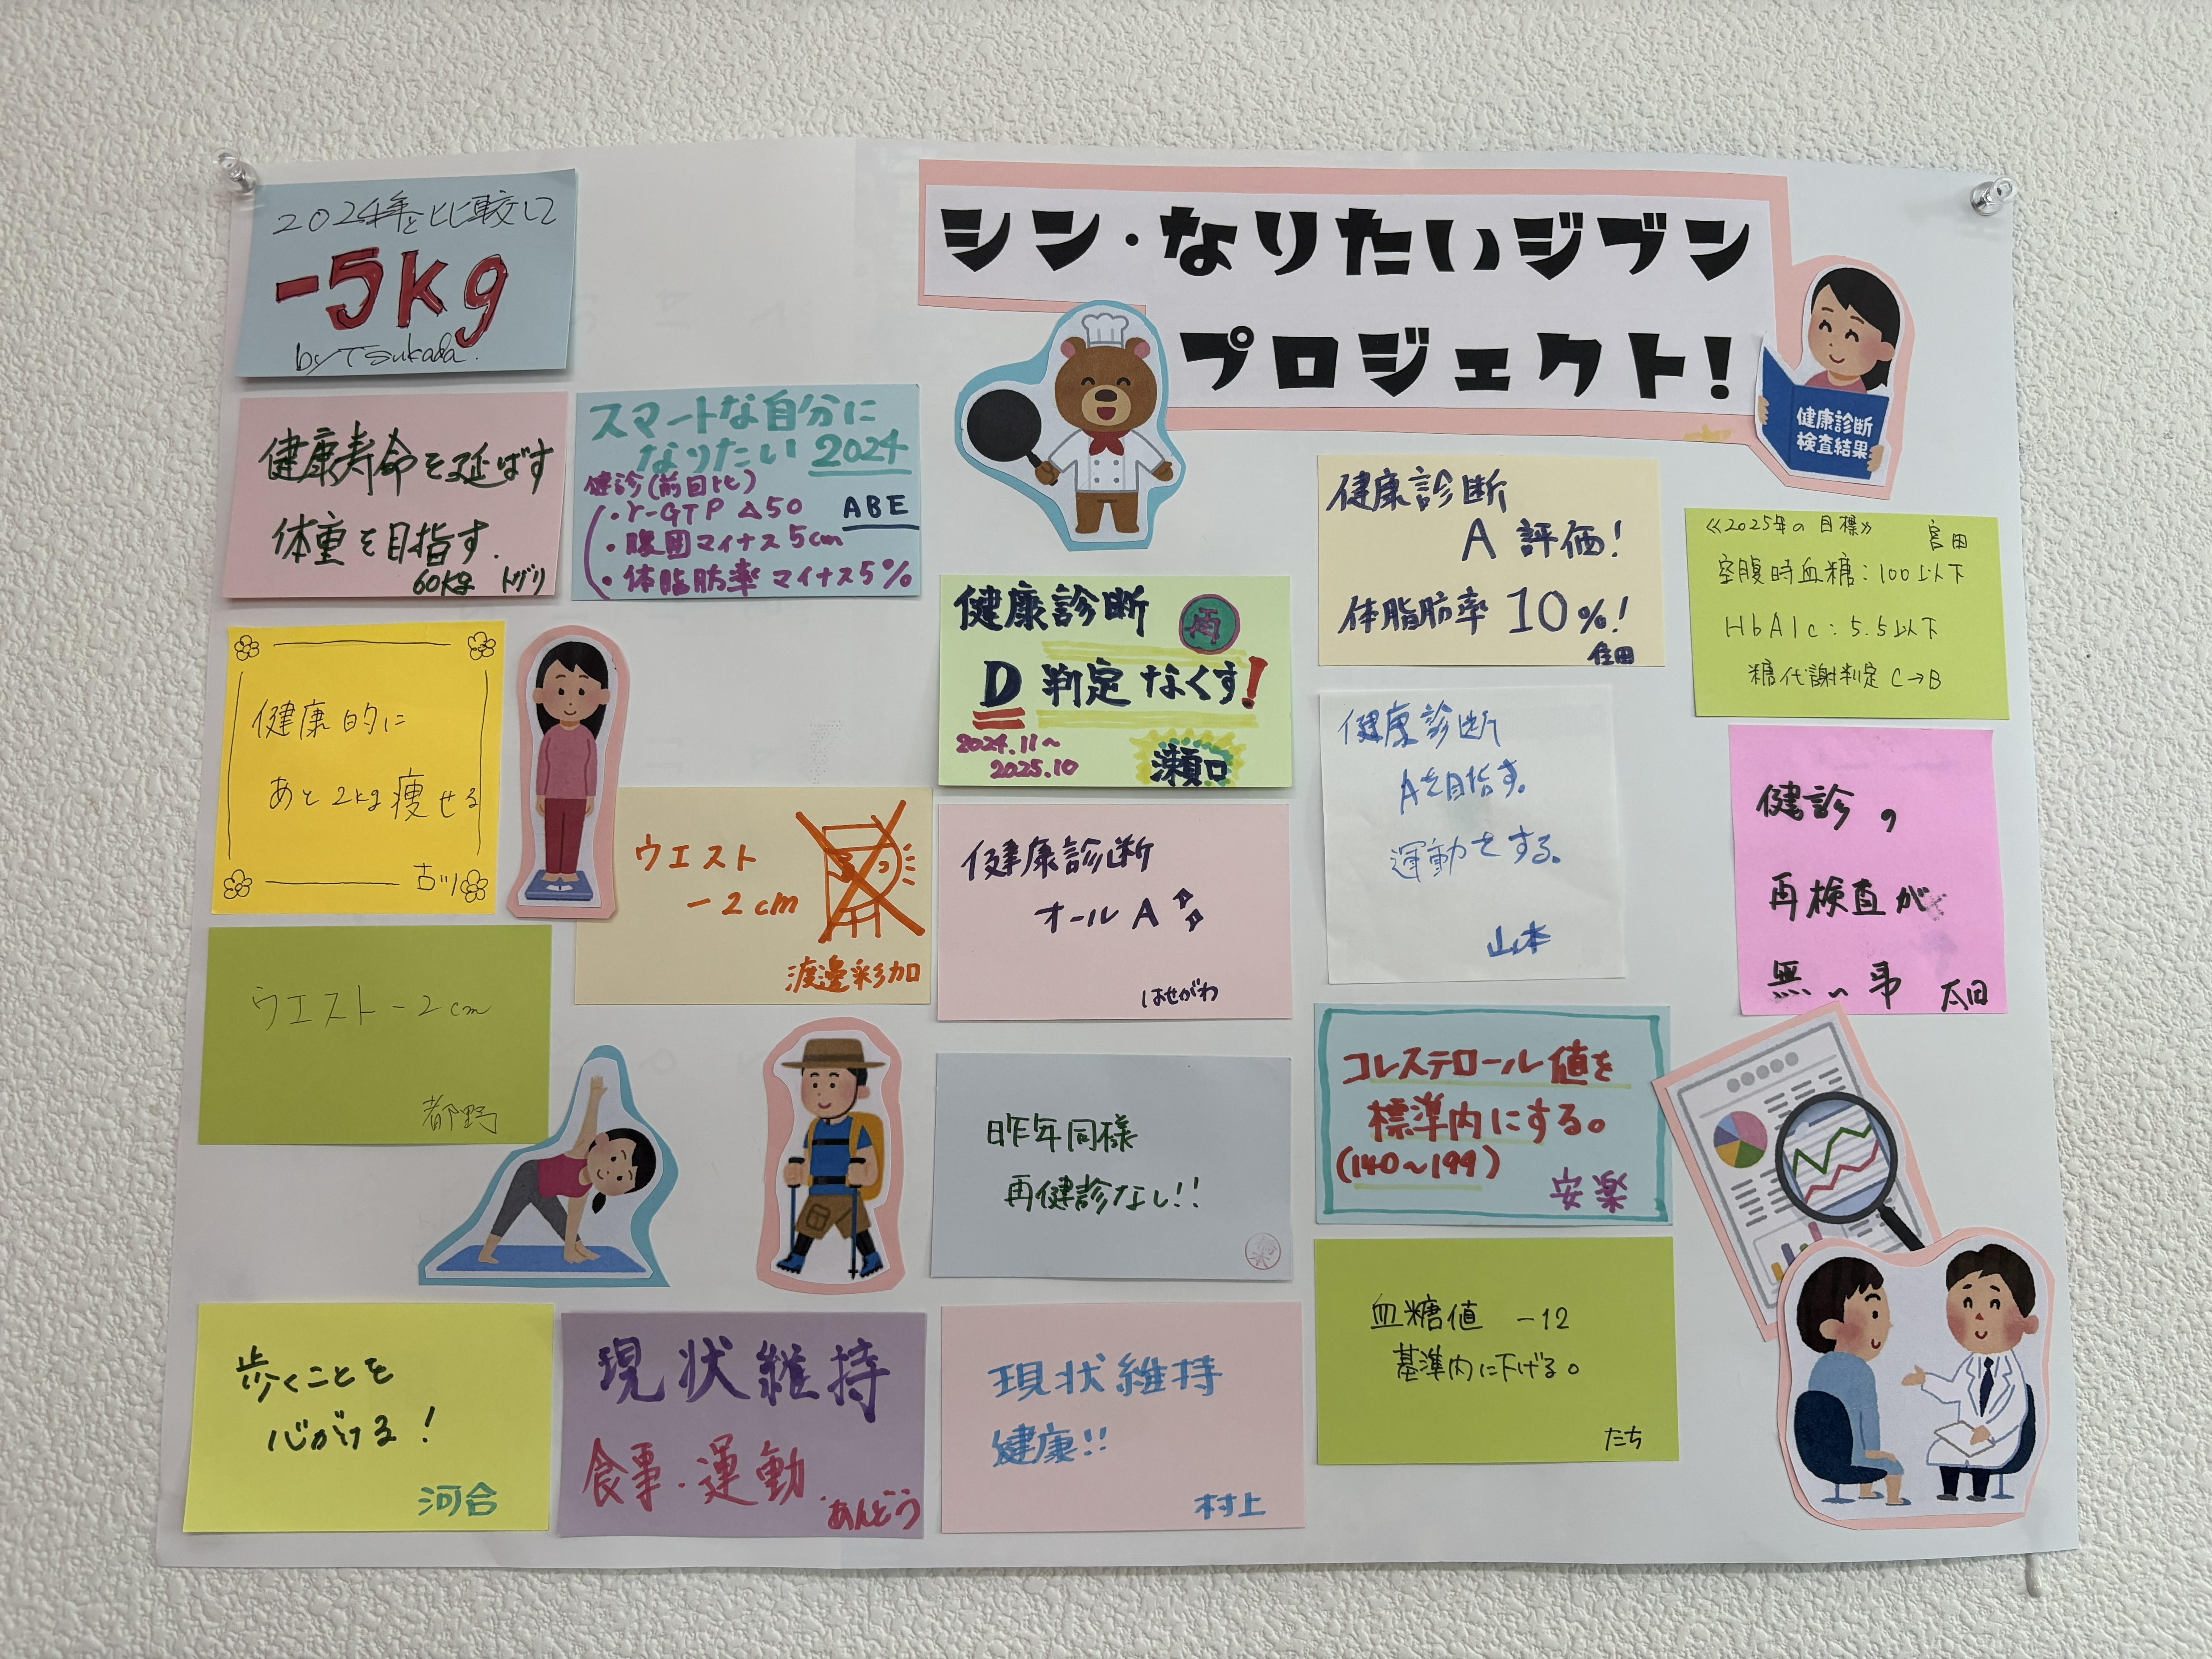 シン・なりたいジブン
プロジェクト!
健康診断
検査結果
2024年と比較して
-5kg
by Tsukada.
健康寿命を延ばす
体重を目指す.
60kg トガリ
スマートな自分に
なりたい 2024
健診(前回比)
・γ-GTP △50 ABE
・腹囲マイナス5cm
・体脂肪率マイナス5%
健康的に
あと2kg痩せる
ウエスト
-2cm
渡邊彩加
ウエスト-2cm
都野
歩くことを
心がける!
河合
現状維持
食事・運動
あんどう
健康診断
D判定なくす!
2024.11~
2025.10
瀬口
健康診断
オールA
はせがわ
昨年同様
再健診なし!!
現状維持
健康!!
村上
健康診断
A評価!
体脂肪率10%!
住田
健康診断
Aを目指す。
運動をする。
山本
コレステロール値を
標準内にする。
(140~199)
安楽
血糖値 -12
基準内に下げる。
たち
≪2025年の目標≫ 宮田
空腹時血糖:100以下
HbA1c:5.5以下
糖代謝判定 C→B
健診の
再検査が
無い事 太田